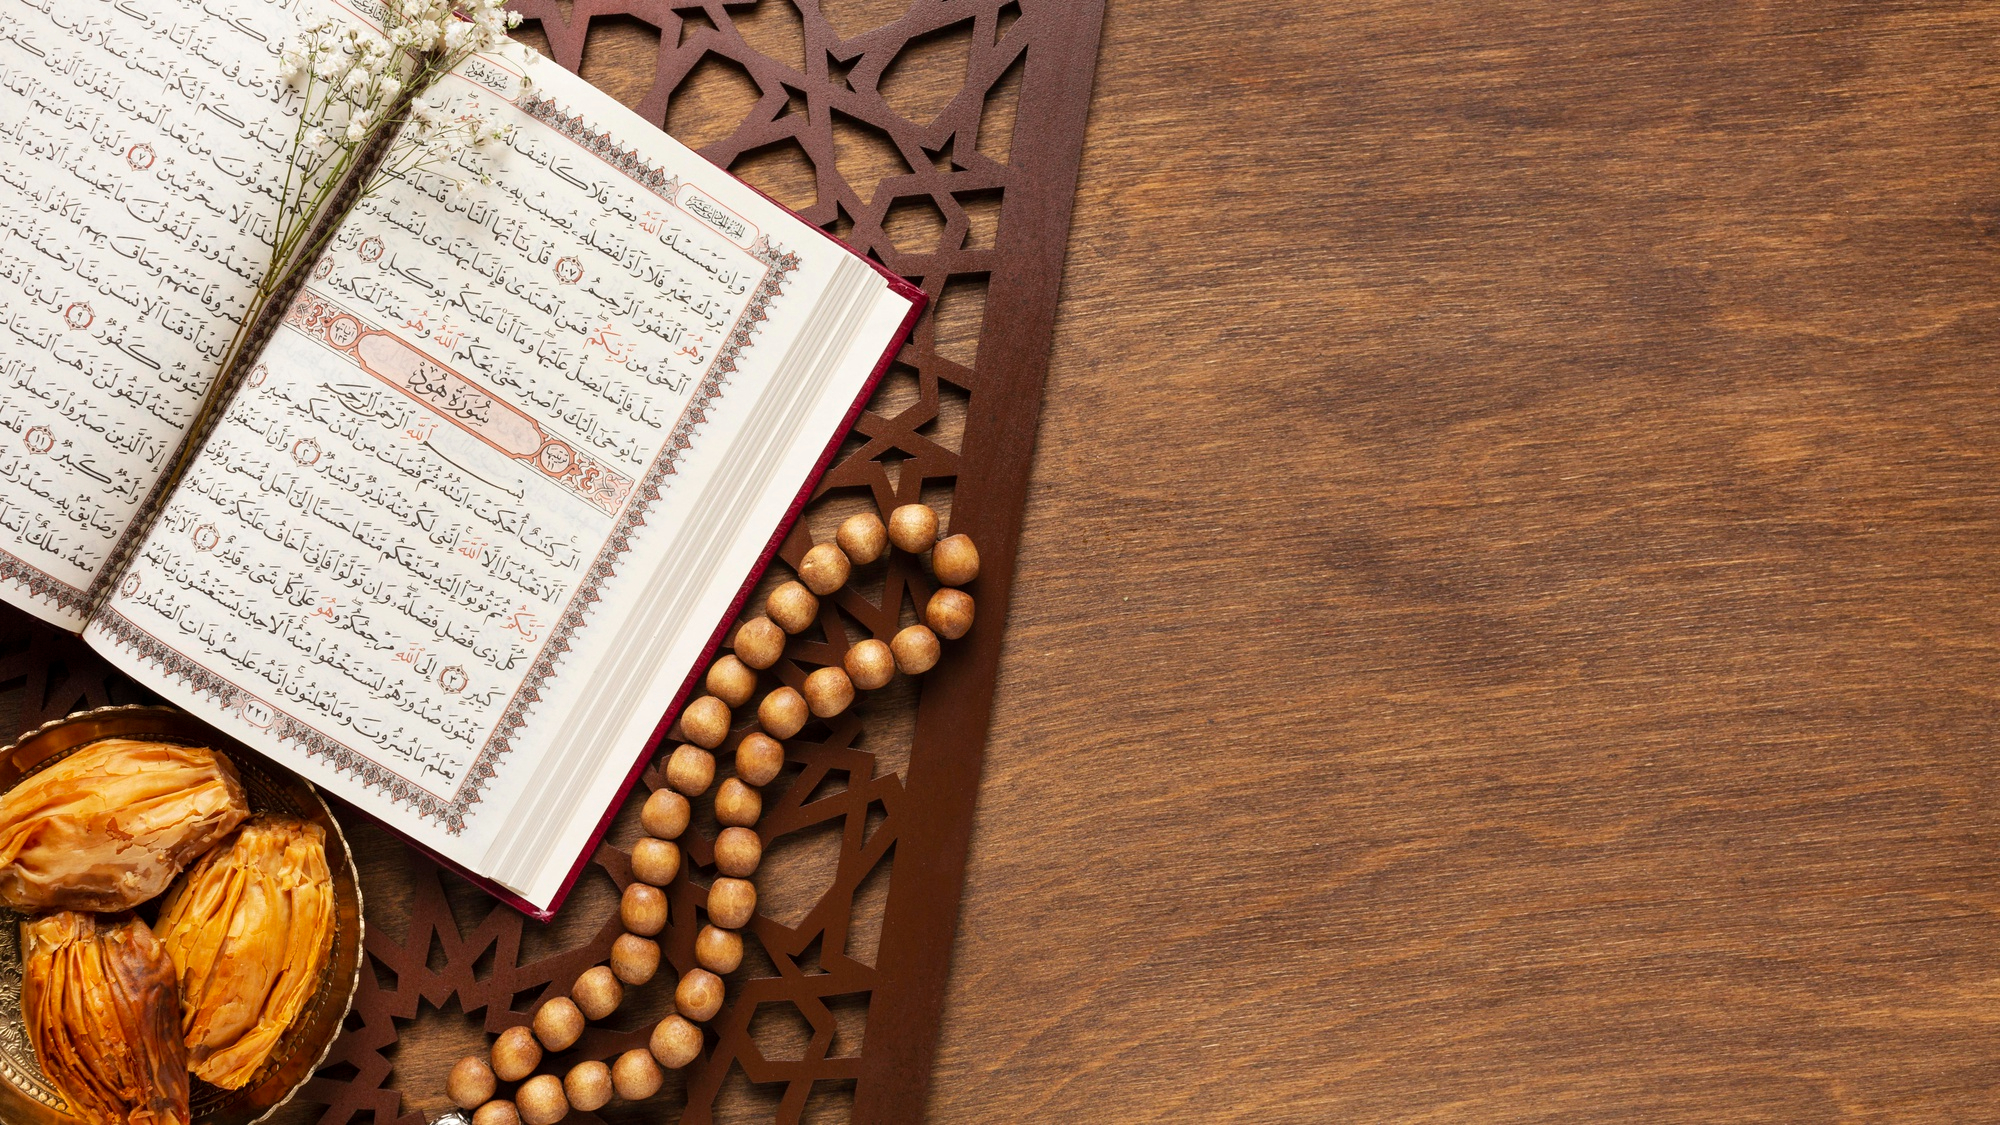 سُورَةُ هُودٍ
الجزء الحادي عشر
وَإِن يَمْسَسْكَ ٱللَّهُ بِضُرٍّ فَلَا كَاشِفَ لَهُۥ إِلَّا هُوَ وَإِن
يُرِدْكَ بِخَيْرٍ فَلَا رَآدَّ لِفَضْلِهِۦ يُصِيبُ بِهِۦ مَن يَشَآءُ مِنْ
وَهُوَ ٱلْغَفُورُ ٱلرَّحِيمُ ١٠٧ قُلْ يَٰٓأَيُّهَا ٱلنَّاسُ قَدْ جَآءَكُمُ
ٱلْحَقُّ مِن رَّبِّكُمْ فَمَنِ ٱهْتَدَىٰ فَإِنَّمَا يَهْتَدِى لِنَفْسِهِۦ وَمَن
ضَلَّ فَإِنَّمَا يَضِلُّ عَلَيْهَا وَمَآ أَنَا۠ عَلَيْكُم بِوَكِيلٍ ١٠٨ وَٱتَّبِعْ
مَا يُوحَىٰٓ إِلَيْكَ وَٱصْبِرْ حَتَّىٰ يَحْكُمَ ٱللَّهُ وَهُوَ خَيْرُ ٱلْحَٰكِمِينَ ١٠٩
سُورَةُ هُودٍ
بِسْمِ ٱللَّهِ ٱلرَّحْمَٰنِ ٱلرَّحِيمِ
الٓر كِتَٰبٌ أُحْكِمَتْ ءَايَٰتُهُۥ ثُمَّ فُصِّلَتْ مِن لَّدُنْ حَكِيمٍ خَبِيرٍ ١
أَلَّا تَعْبُدُوٓا۟ إِلَّا ٱللَّهَ إِنَّنِى لَكُم مِّنْهُ نَذِيرٌ وَبَشِيرٌ ٢ وَأَنِ ٱسْتَغْفِرُوا۟
رَبَّكُمْ ثُمَّ تُوبُوٓا۟ إِلَيْهِ يُمَتِّعْكُم مَّتَٰعًا حَسَنًا إِلَىٰٓ أَجَلٍ مُّسَمًّى وَيُؤْتِ
كُلَّ ذِى فَضْلٍ فَضْلَهُۥ وَإِن تَوَلَّوْا۟ فَإِنِّىٓ أَخَافُ عَلَيْكُمْ عَذَابَ يَوْمٍ
كَبِيرٍ ٣ إِلَى ٱللَّهِ مَرْجِعُكُمْ وَهُوَ عَلَىٰ كُلِّ شَىْءٍ قَدِيرٌ ٤ أَلَآ إِنَّهُمْ
يَثْنُونَ صُدُورَهُمْ لِيَسْتَخْفُوا۟ مِنْهُ أَلَا حِينَ يَسْتَغْشُونَ ثِيَابَهُمْ
يَعْلَمُ مَا يُسِرُّونَ وَمَا يُعْلِنُونَ إِنَّهُۥ عَلِيمٌۢ بِذَاتِ ٱلصُّدُورِ ٥
٢٢١
وَٱلْأَرْضَ فِى سِتَّةِ أَيَّامٍ وَكَانَ
لِيَبْلُوَكُمْ أَيُّكُمْ أَحْسَنُ عَمَلًا وَلَئِن
مَّبْعُوثُونَ مِنۢ بَعْدِ ٱلْمَوْتِ لَيَقُولَنَّ ٱلَّذِينَ كَفَرُوٓا۟
هَٰذَآ إِلَّا سِحْرٌ مُّبِينٌ ٧ وَلَئِنْ أَخَّرْنَا عَنْهُمُ ٱلْعَذَابَ
مَّعْدُودَةٍ لَّيَقُولُنَّ مَا يَحْبِسُهُۥٓ أَلَا يَوْمَ يَأْتِيهِمْ
مَصْرُوفًا عَنْهُمْ وَحَاقَ بِهِم مَّا كَانُوا۟ بِهِۦ
وَلَئِنْ أَذَقْنَا ٱلْإِنسَٰنَ مِنَّا رَحْمَةً ثُمَّ
لَيَـُٔوسٌ كَفُورٌ ٩ وَلَئِنْ أَذَقْنَٰهُ
مَسَّتْهُ لَيَقُولَنَّ ذَهَبَ ٱلسَّيِّـَٔاتُ
إِلَّا ٱلَّذِينَ صَبَرُوا۟ وَعَمِلُوا۟
وَأَجْرٌ كَبِيرٌ ١١ فَلَعَلَّكَ
وَضَآئِقٌۢ بِهِۦ صَدْرُكَ
مَعَهُۥ مَلَكٌ إِنَّمَآ